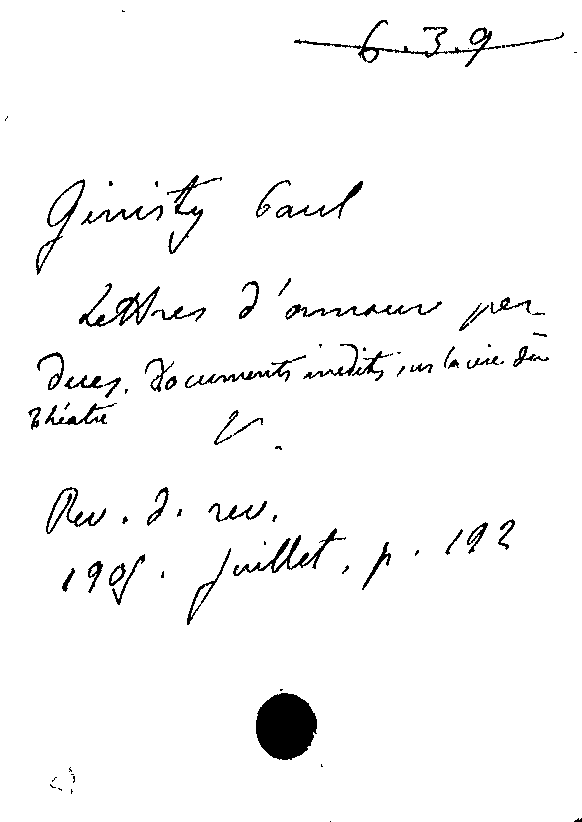 6.3.9
Ginisty Paul
Lettres d'amour per-
dues. Documents inédits sur la vie du
Théâtre
V.
Rev. d. rev.
1905. Juillet, p. 192